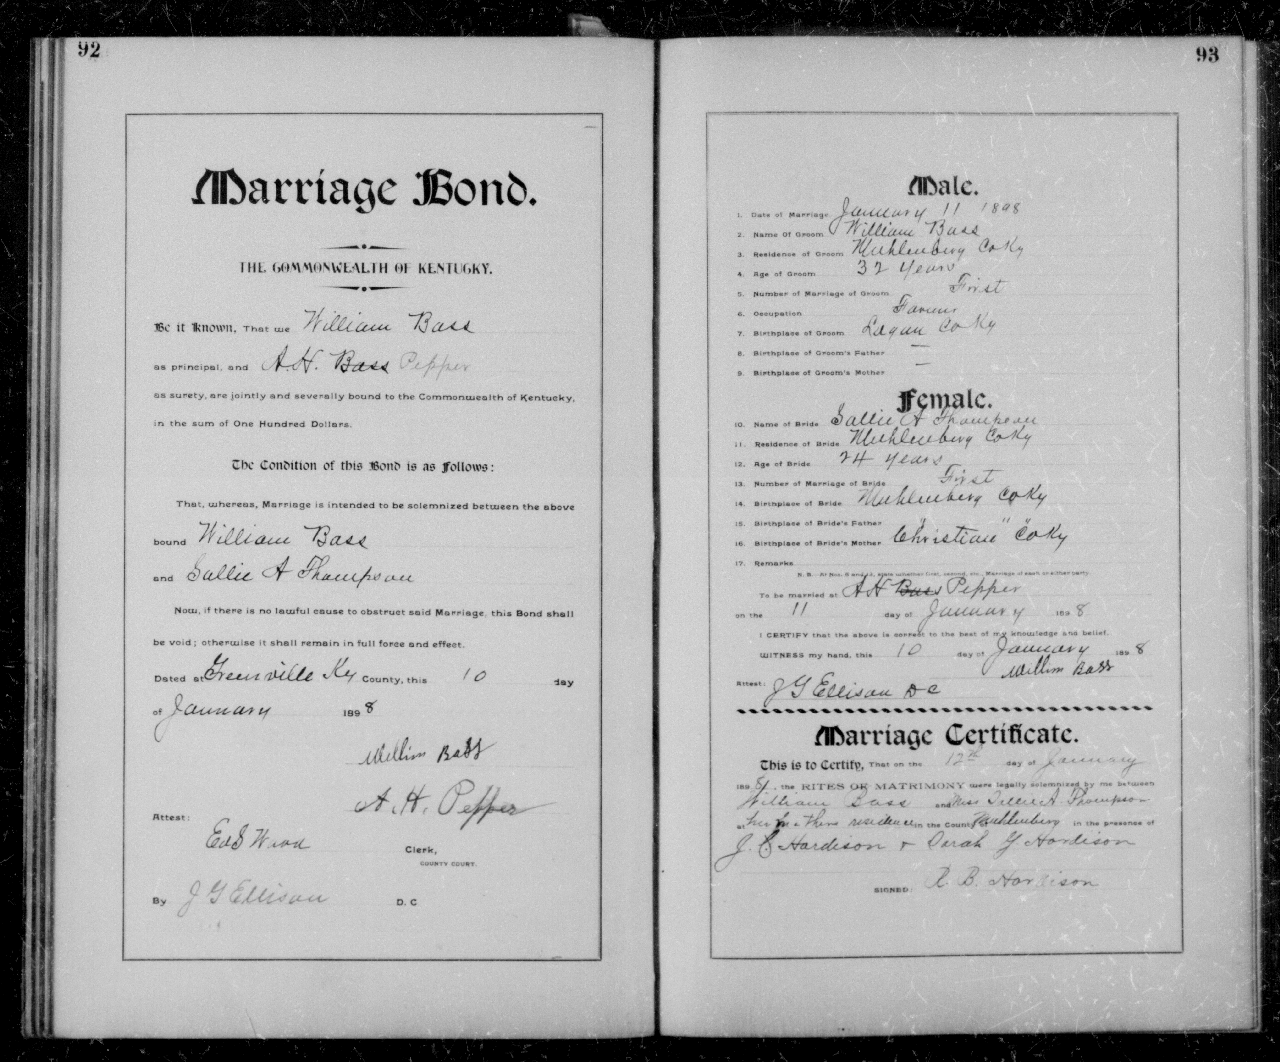 92
Marriage Bond.
THE COMMONWEALTH OF KENTUCKY.
Be it Known, That we William Bass
as principal, and A. H. Bass Pepper
as surety, are jointly and severally bound to the Commonwealth of Kentucky,
in the sum of One Hundred Dollars.
The Condition of this Bond is as Follows:
That, whereas, Marriage is intended to be solemnized between the above
bound William Bass
and Sallie A Thompson
Now, if there is no lawful cause to obstruct said Marriage, this Bond shall
be void; otherwise it shall remain in full force and effect.
Dated at Greenville Ky County, this 10 day
of January 1898
William Bass
A. H. Pepper
Attest:
Ed S Wood Clerk,
COUNTY COURT.
By J G Ellison D. C
93
Male.
1. Date of Marriage January 11 1898
2. Name Of Groom William Bass
3. Residence of Groom Muhlenberg Co Ky
4. Age of Groom 32 years
5. Number of Marriage of Groom First
6. Occupation Farmer
7. Birthplace of Groom Logan Co Ky
8. Birthplace of Groom's Father —
9. Birthplace of Groom's Mother —
Female.
10. Name of Bride Sallie A Thompson
11. Residence of Bride Muhlenberg Co Ky
12. Age of Bride 24 years
13. Number of Marriage of Bride First
14. Birthplace of Bride Muhlenberg Co Ky
15. Birthplace of Bride's Father " "
16. Birthplace of Bride's Mother Christian Co Ky
17. Remarks
N. B.—At Nos. 5 and 13, state whether first, second, etc., Marriage of each or either party.
To be married at A H Bass Pepper
on the 11 day of January 1898
I CERTIFY that the above is correct to the best of my knowledge and belief.
WITNESS my hand, this 10 day of January 1898
William Bass
Attest: J G Ellison D C
Marriage Certificate.
This is to Certify, That on the 12th day of January
189 , the RITES OF MATRIMONY were legally solemnized by me between
William Bass and Miss Sallie A. Thompson
at her mothers residence in the County of Muhlenberg in the presence of
J. C Hardison & Sarah Y Hardison
SIGNED: R. B. Hardison